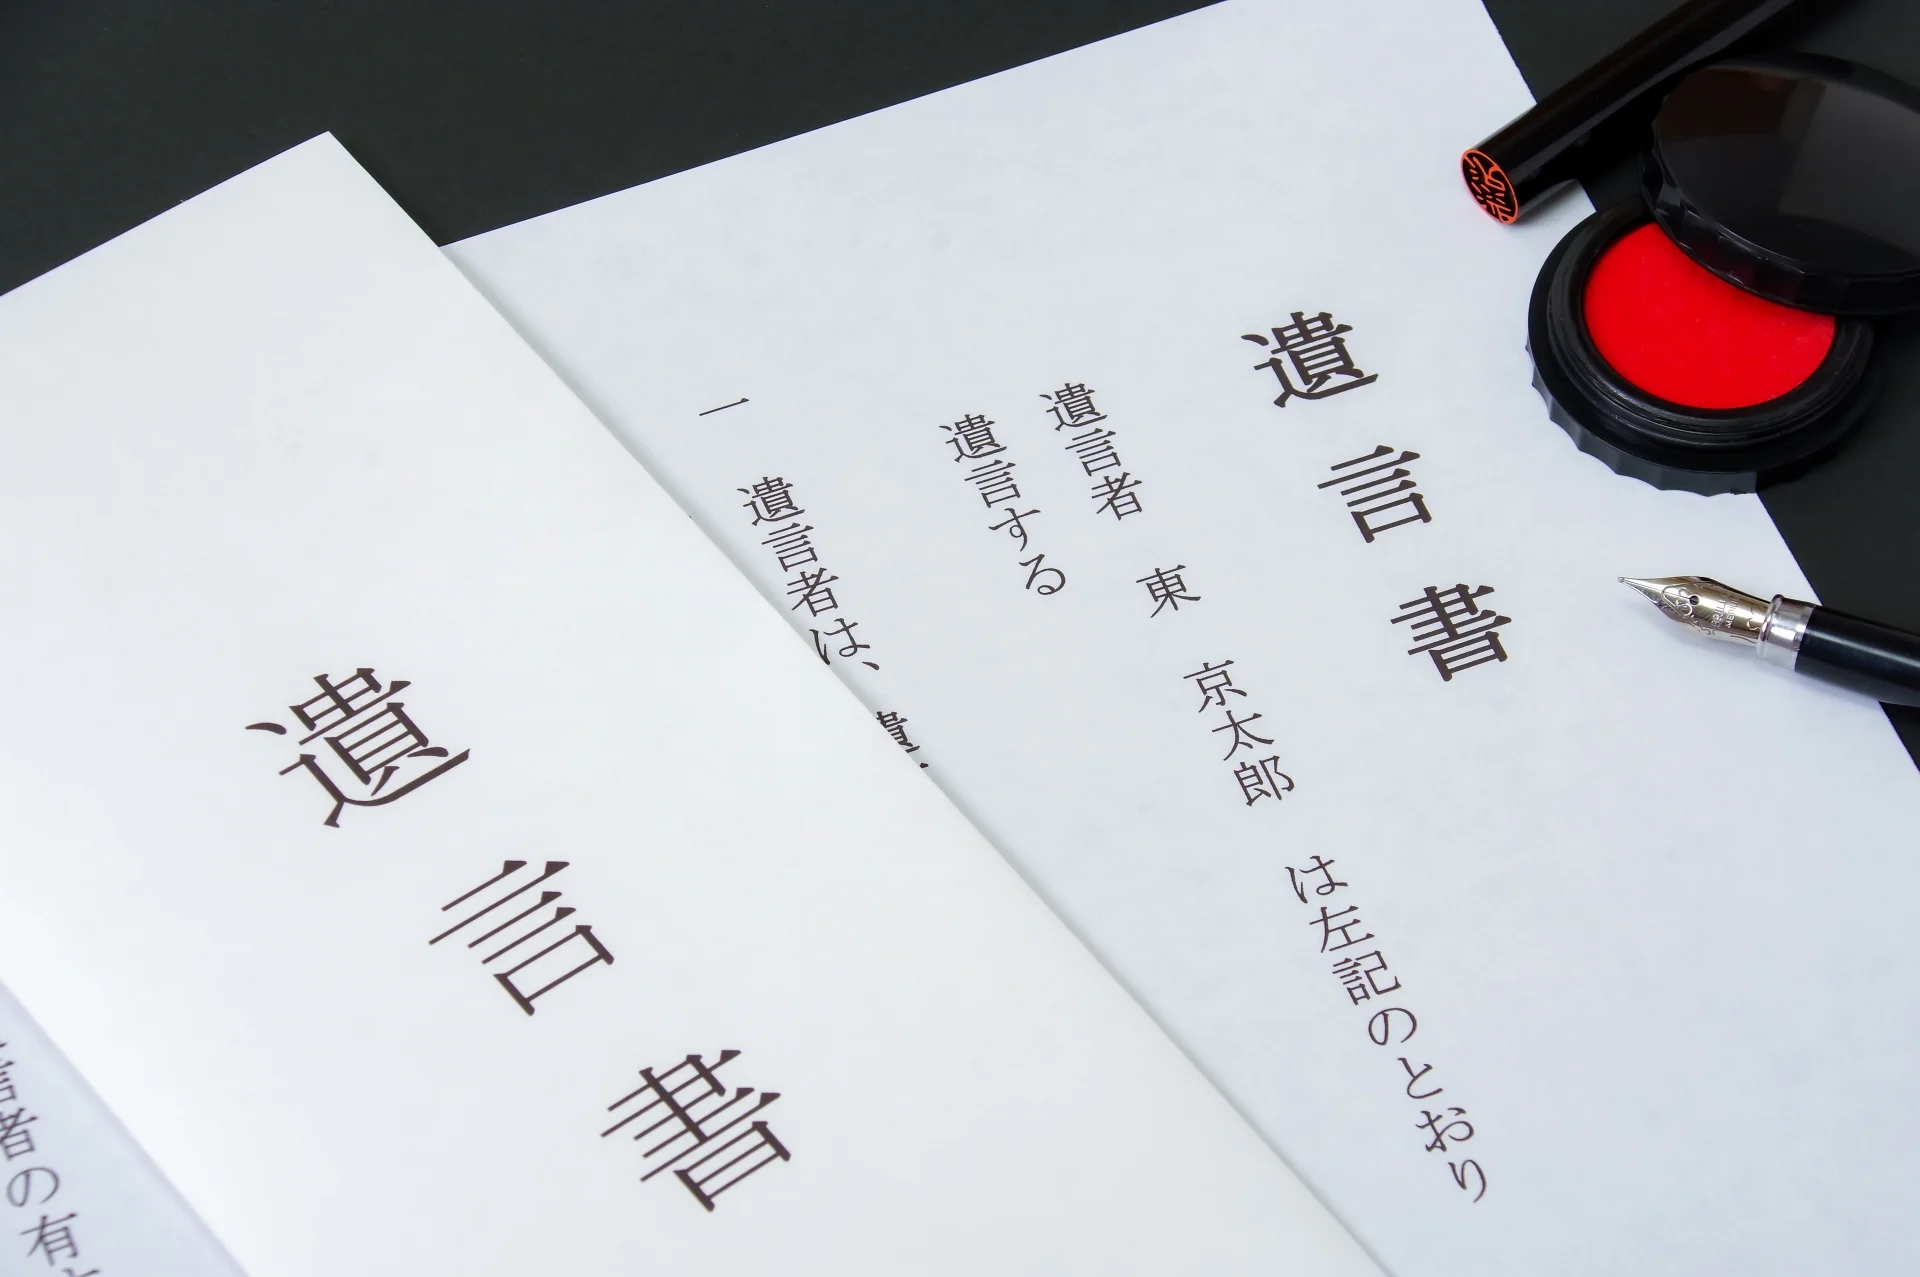 遺言書
遺言者 東 京太郎 は左記のとおり
遺言する
一 遺言者は、遺
遺言書
言者の有